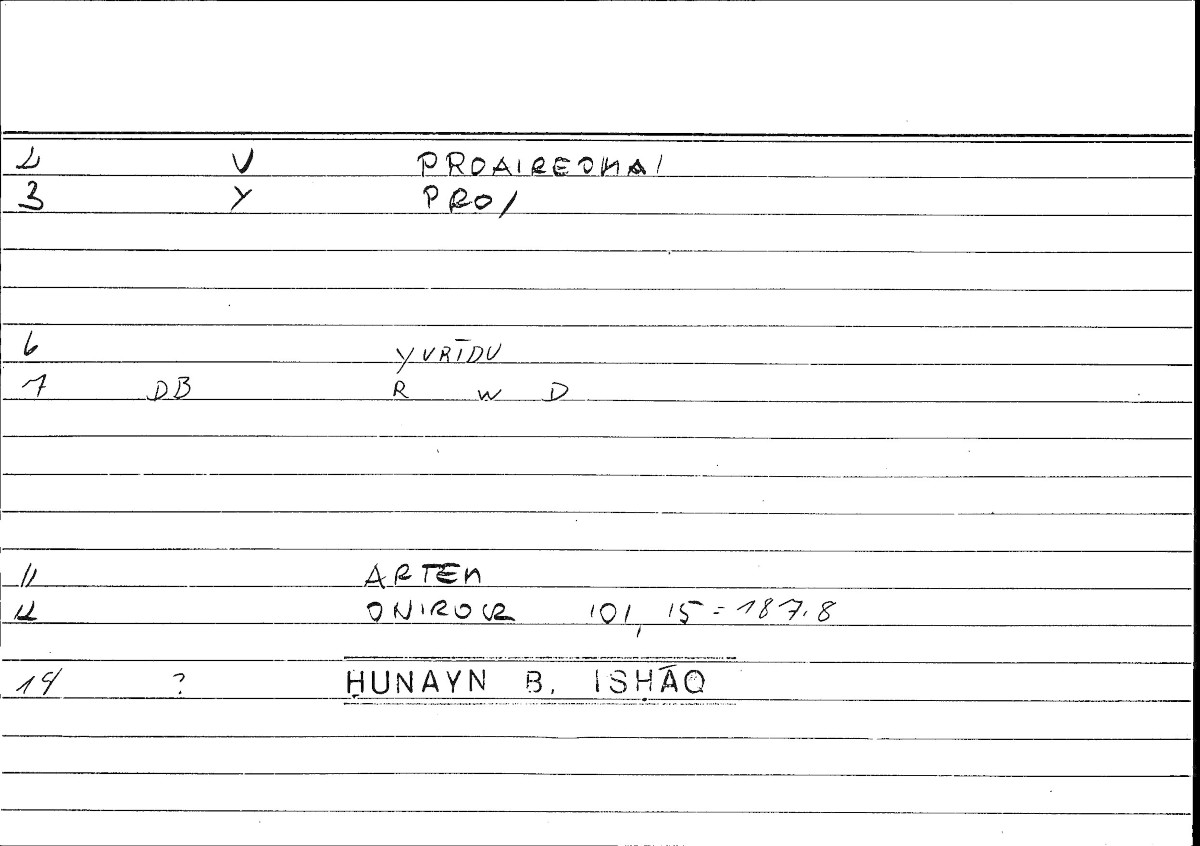 2 V PROAIREOMAI
3 Y PRO/
6 YURĪDU
7 DB R W D
11 ARTEM
12 ONIROCR 101, 15 = 187.8
14 ? ḤUNAYN B. ISḤĀQ